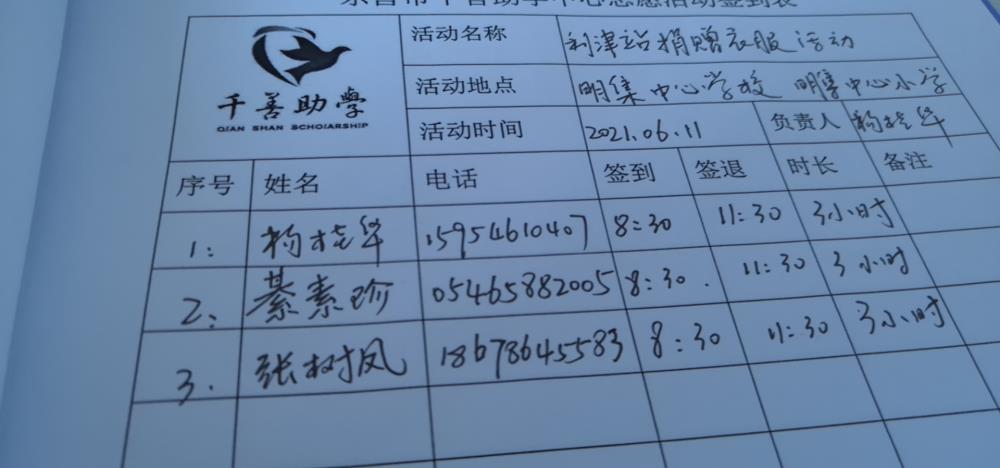 千善助學
QIAN SHAN SCHOLARSHIP
活动名称 利津站捐赠衣服活动
活动地点 明集中心学校 明集中心小学
活动时间 2021.06.11 负责人 杨桂华
序号 姓名 电话 签到 签退 时长 备注
1: 杨桂华 15954610407 8:30 11:30 3小时
2: 綦素珍 05465882005 8:30. 11:30 3小时
3. 张树凤 18678645583 8:30 11:30 3小时